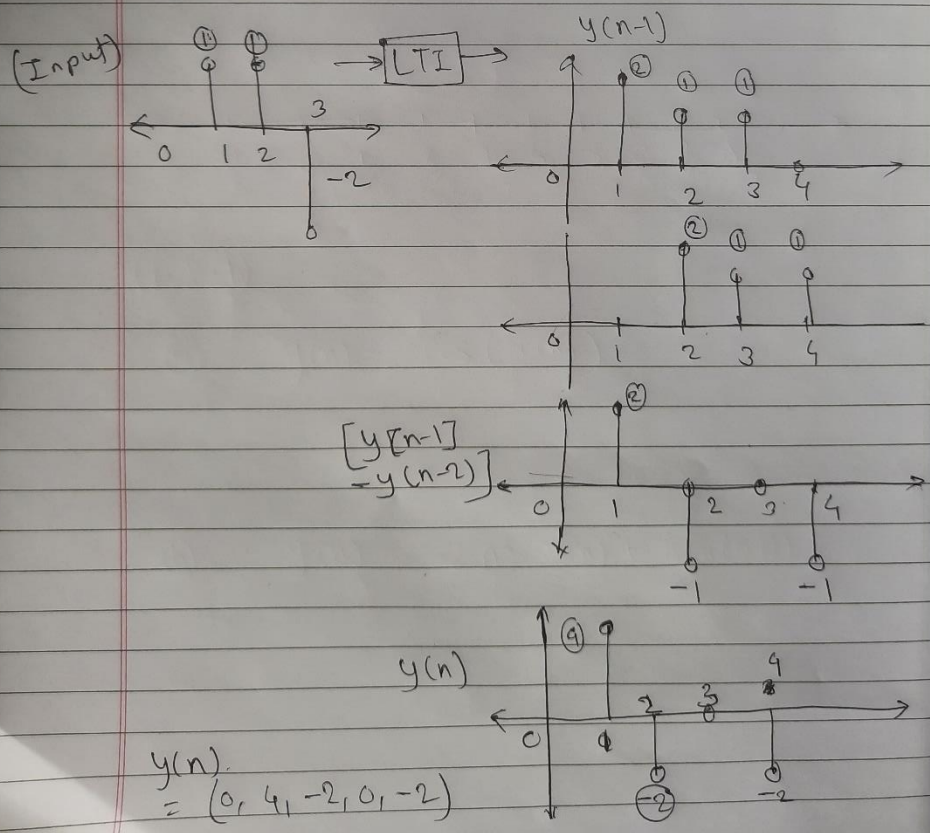 (Input)
① ①
LTI
y(n-1)
② ① ①
3
0 1 2
-2
0 1 2 3 4
② ① ①
0 1 2 3 4
[y[n-1]
-y(n-2)]
②
0 1 2 3 4
-1 -1
y(n)
④
2 3 4
0 1
-2 -2
y(n).
= (0, 4, -2, 0, -2)